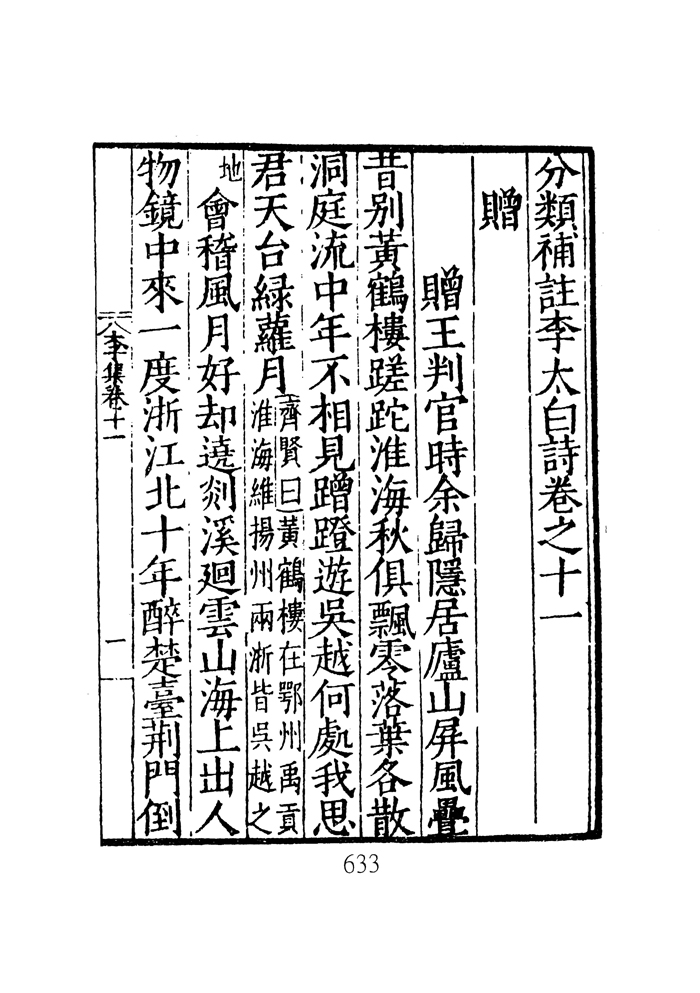 分類補註李太白詩卷之十一
贈
贈王判官時余歸隱居廬山屏風疊
昔別黃鶴樓蹉跎淮海秋俱飄零落葉各散
洞庭流中年不相見蹭蹬遊吳越何處我思
君天台綠蘿月
齊賢曰黃鶴樓在鄂州禹貢
淮海維揚州兩浙皆吳越之
地
會稽風月好却遶剡溪廻雲山海上出人
物鏡中來一度浙江北十年醉楚臺荆門倒
李集卷十一
一
633